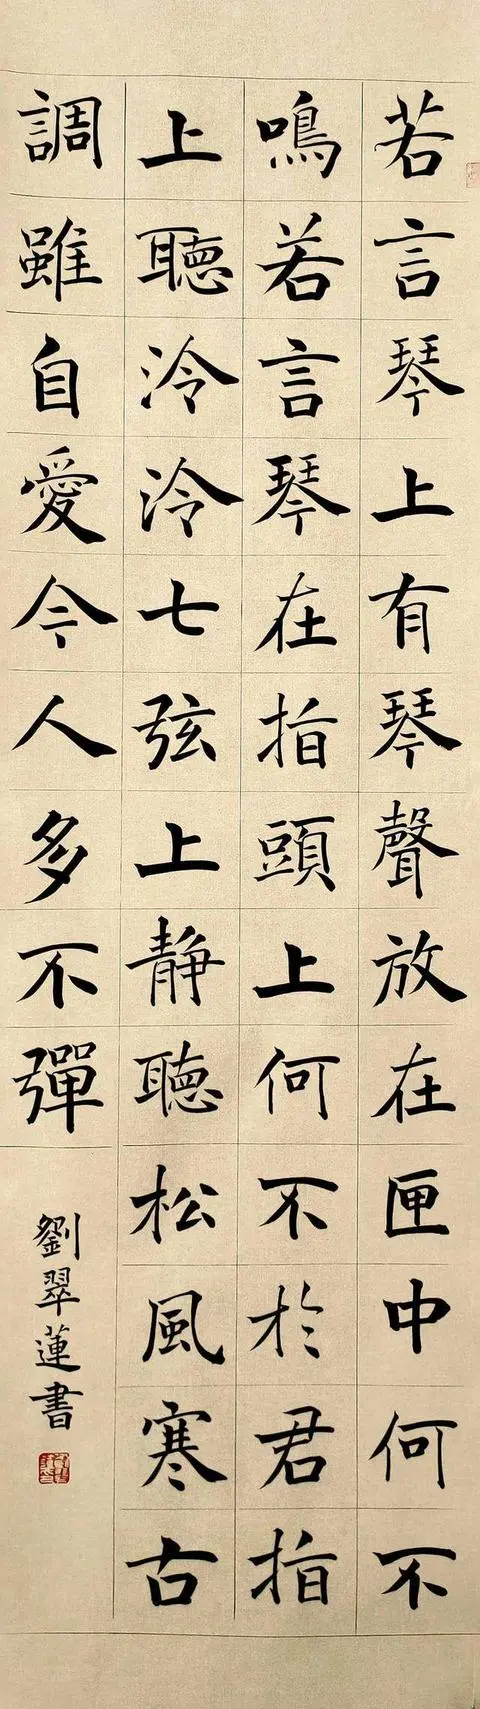 若言琴上有琴聲放在匣中何不
鳴若言琴在指頭上何不於君指
上聽泠泠七弦上静聽松風寒古
調雖自愛今人多不彈
劉翠蓮書